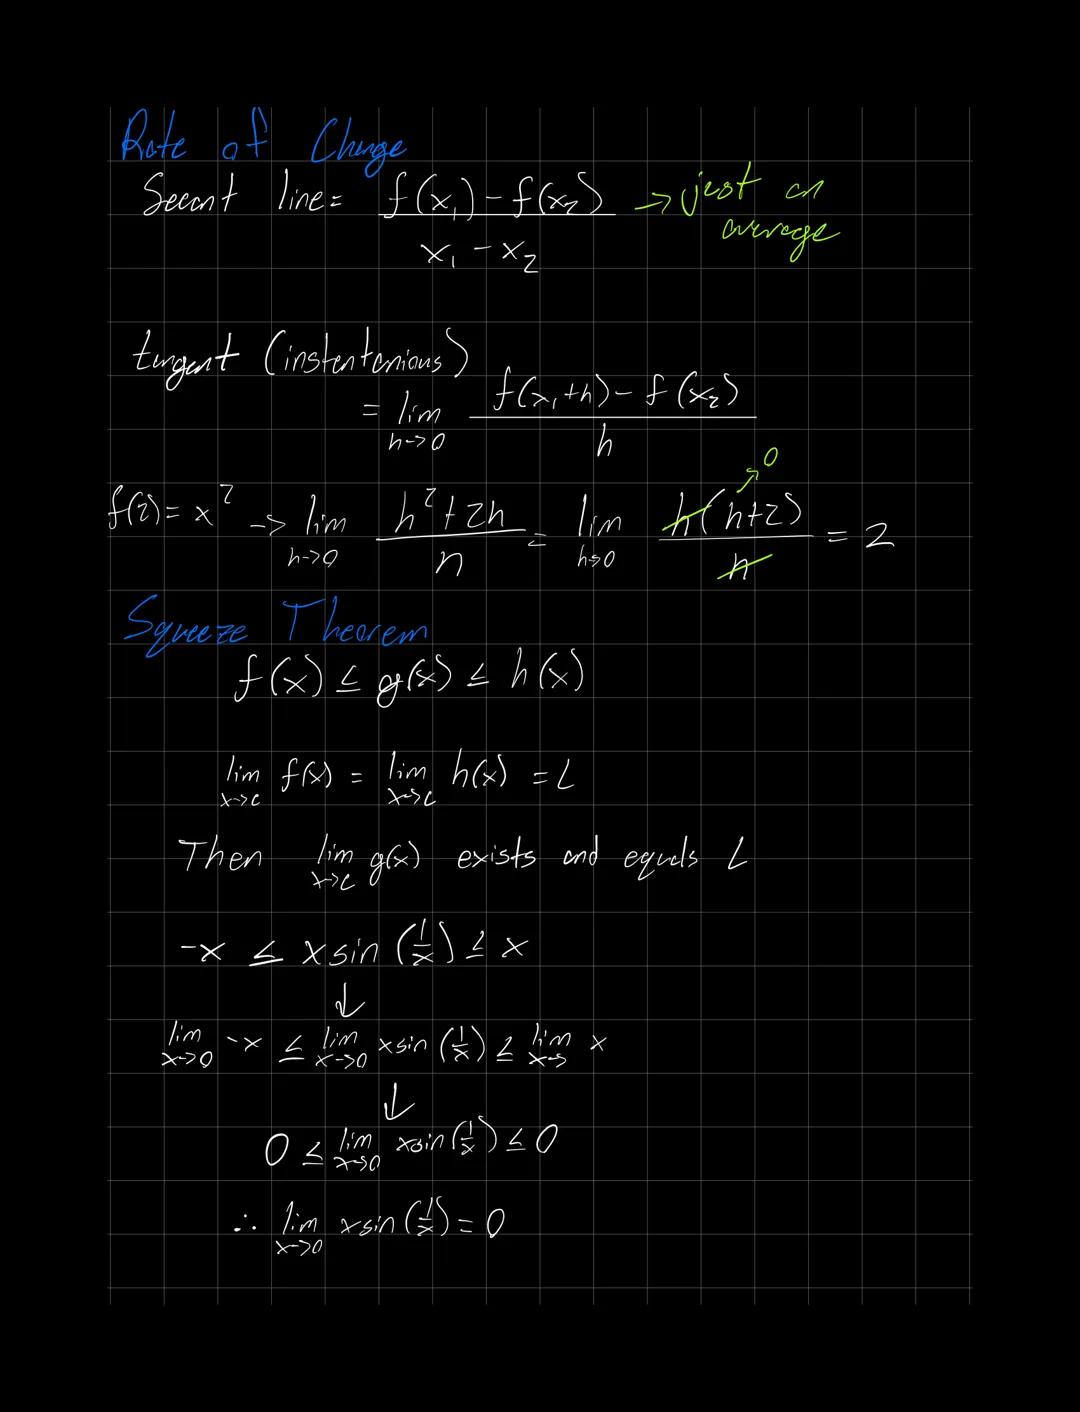 Rate of Change
Secant line = f(x₁) - f(x₂) / x₁ - x₂ → just an average
tangent (instentanious)
= lim h->0 f(x₁+h) - f(x₂) / h
f(2) = x² -> lim h->0 h²+2h / h = lim h->0 h(h+2) / h = 2
0
Squeeze Theorem
f(x) ≤ g(x) ≤ h(x)
lim x->c f(x) = lim x->c h(x) = L
Then lim x->c g(x) exists and equals L
-x ≤ x sin (1/x) ≤ x
↓
lim x->0 -x ≤ lim x->0 x sin (1/x) ≤ lim x-> x
↓
0 ≤ lim x->0 x sin (1/x) ≤ 0
∴ lim x->0 x sin (1/x) = 0